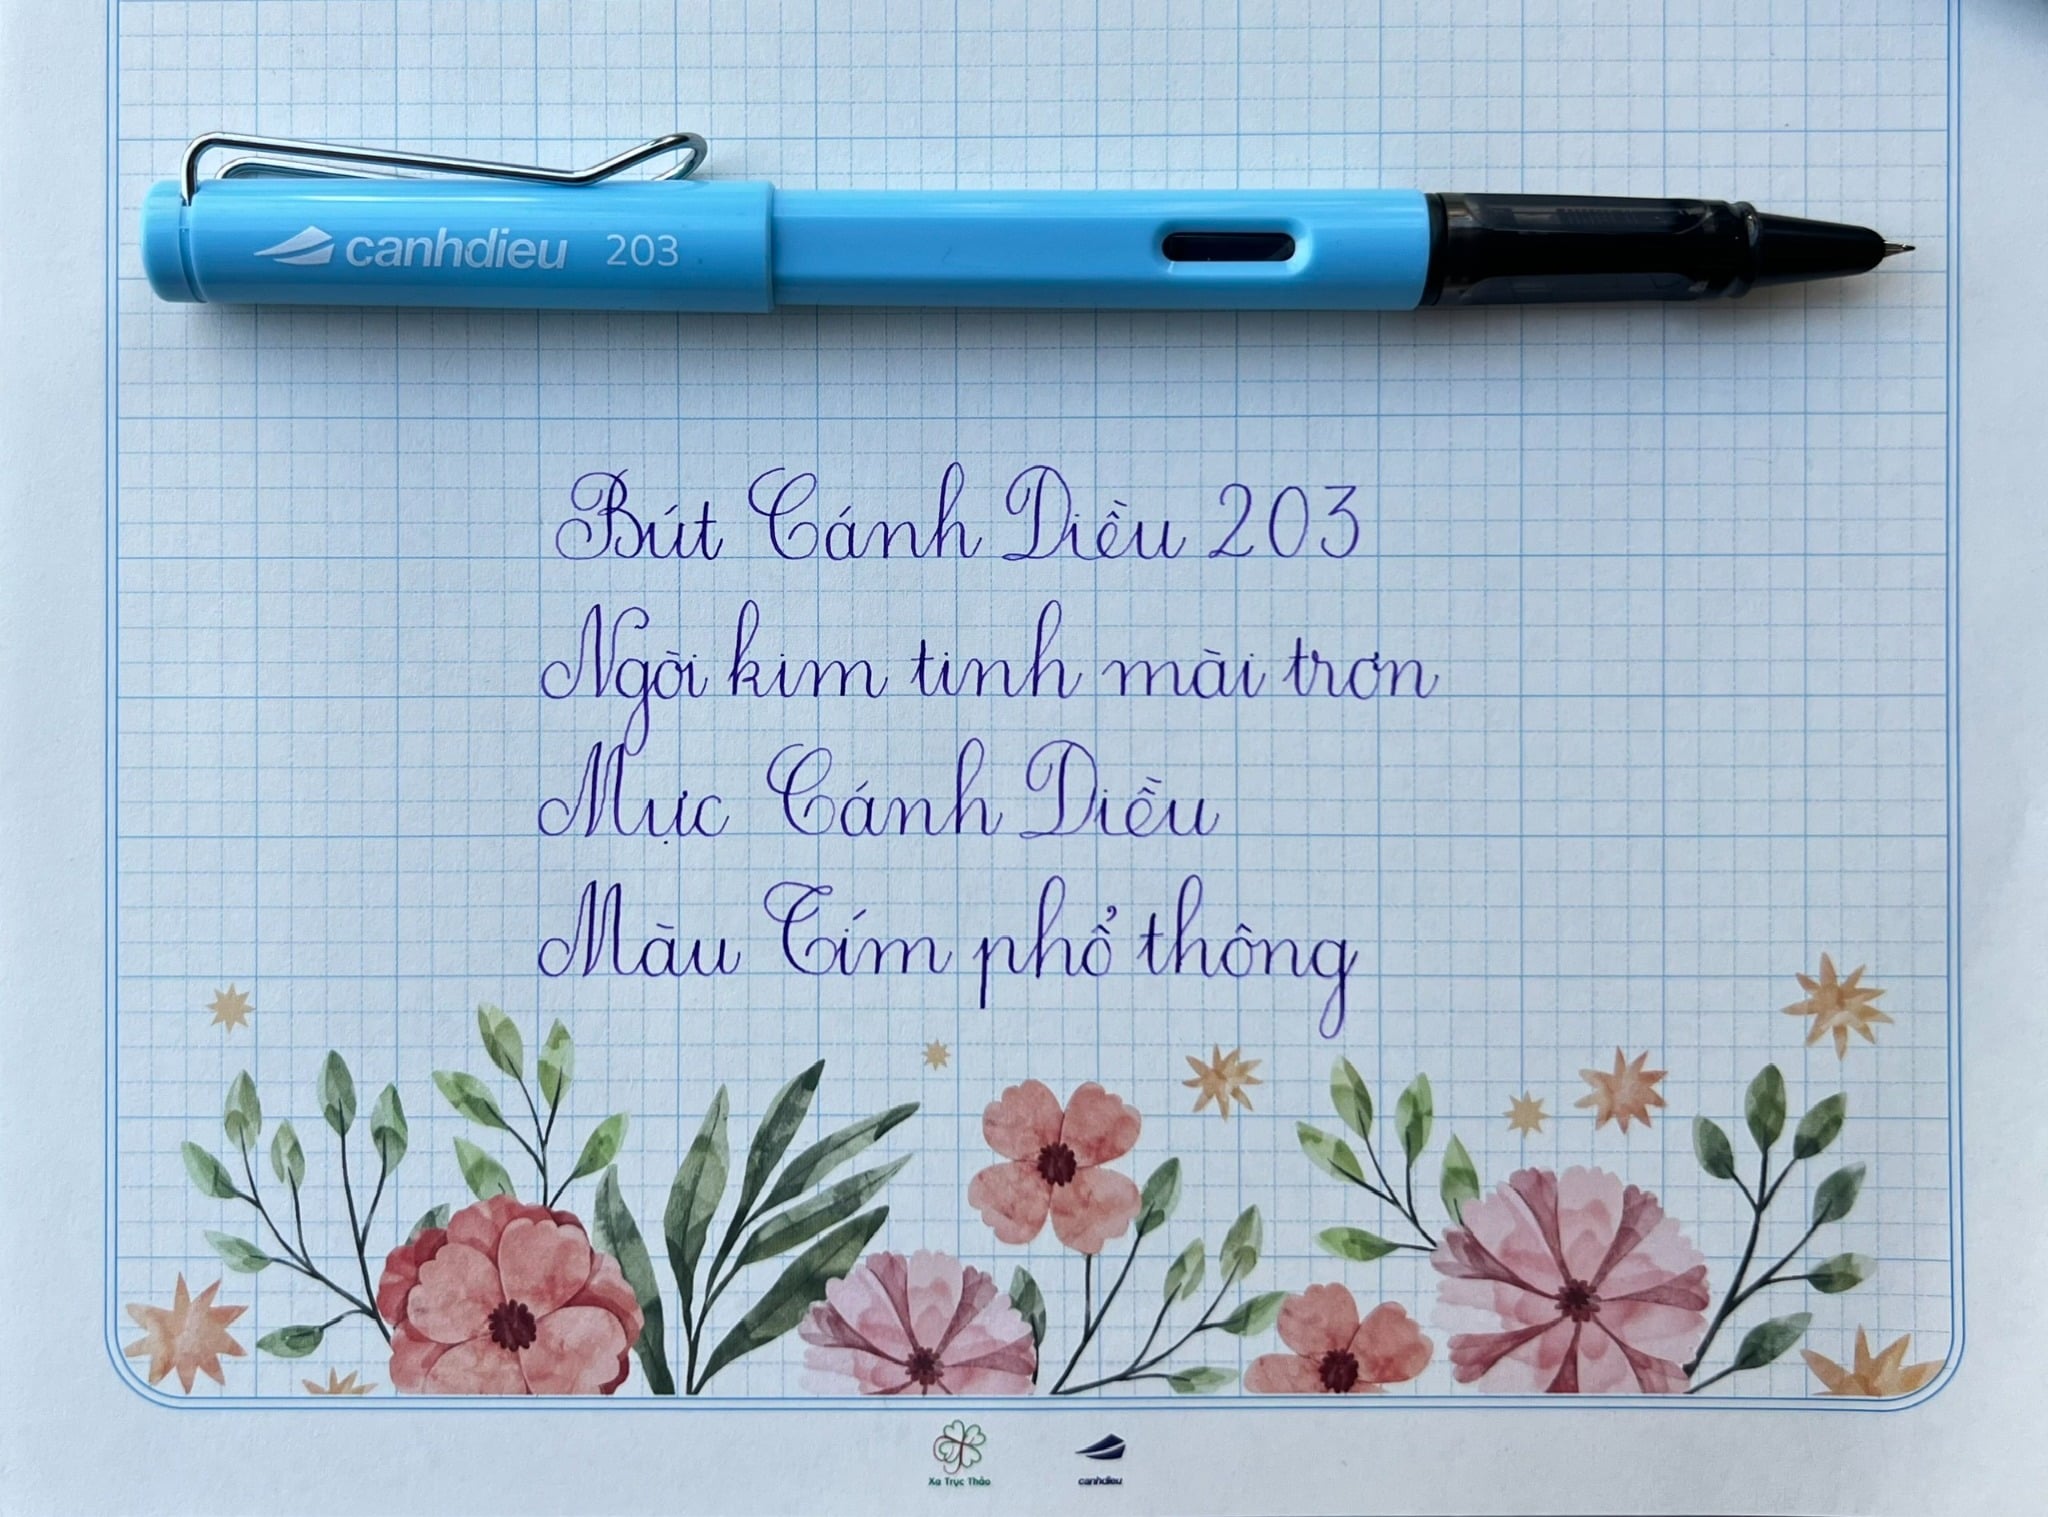 canhdieu 203
Bút Cánh Diều 203
Ngòi kim tinh mài trơn
Mực Cánh Diều
Màu Tím phổ thông
Xa Trục Thảo
canhdieu